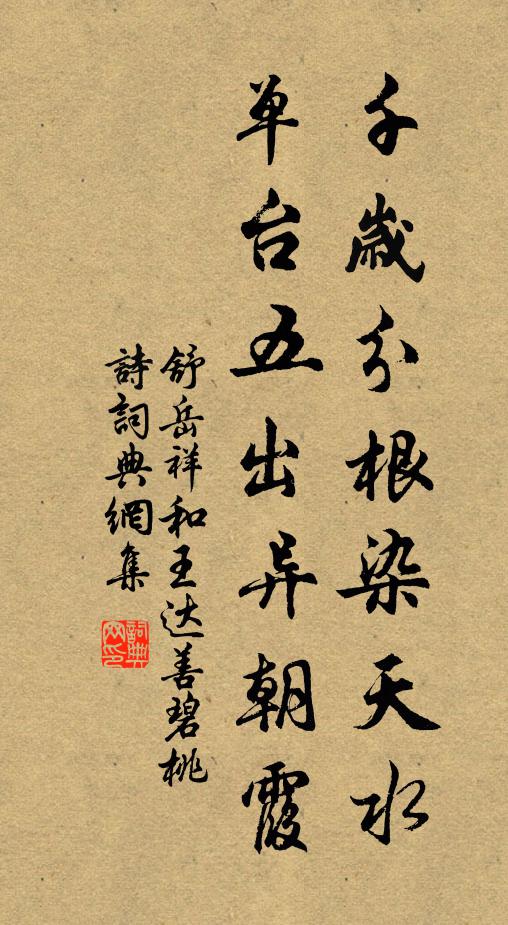 千歲分根染天水
单台五出异朝霞
舒岳祥和王达善碧桃
詩詞典網集
詞典网印